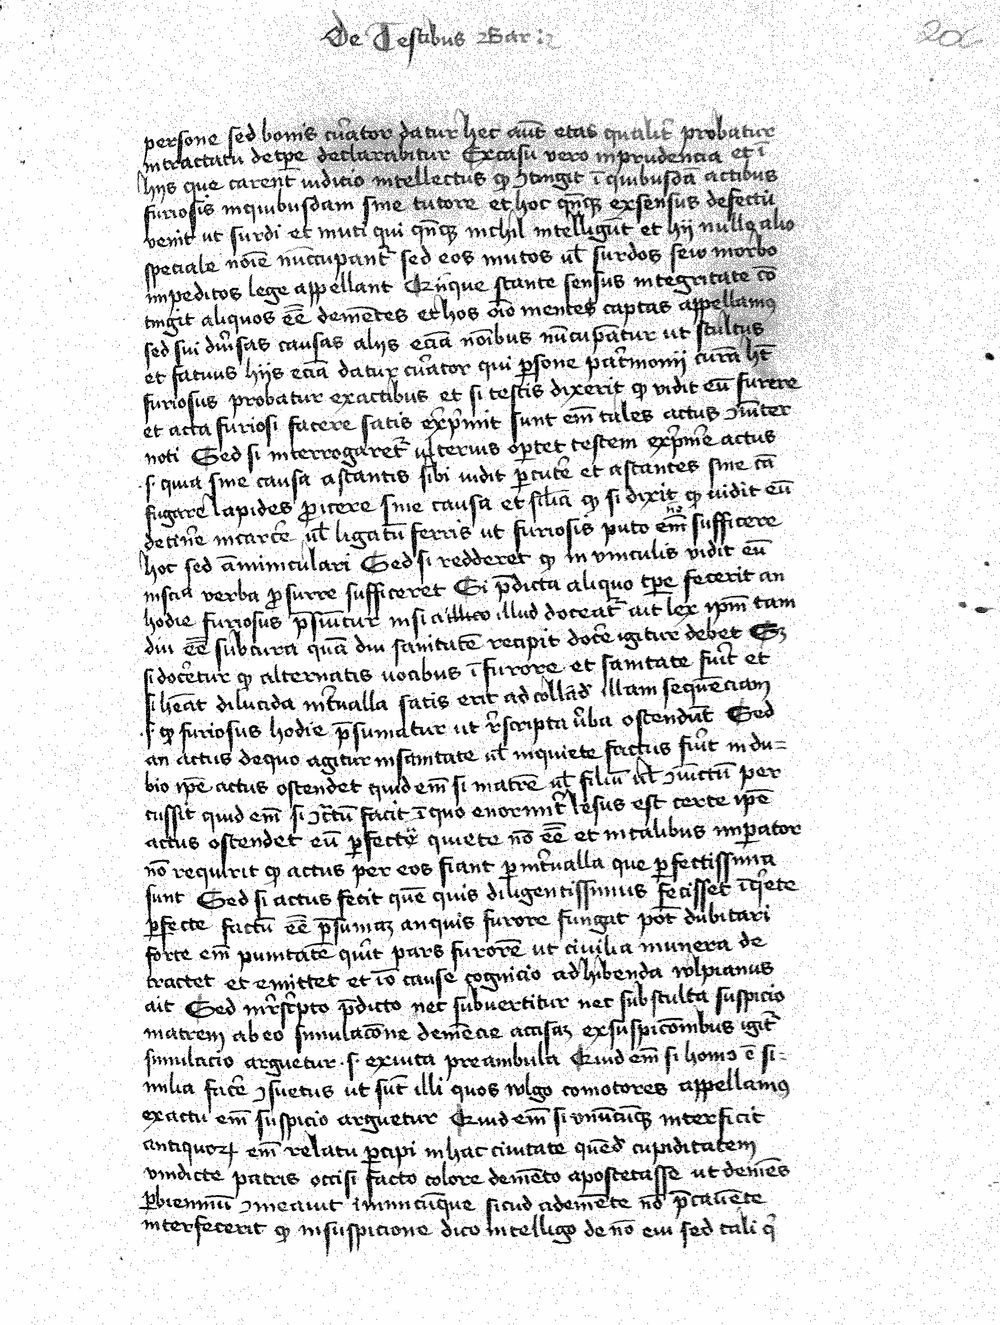 De Testibus Bar:
206
persone sed bonis cu̅ator datur hec aut̅ etas qualit̅ probatur
intractatu detp̅e declarabitur Excasu vero inprudencia et i̅
hijs que carent̅ iudicio intellectus qꝫ ꝯtingit i̅ quibusda̅ actibus
furiosis inquibusdam sine tutore et hoc qn̅qꝫ exsensus defectu̅
venit ut surdi et muti qui qn̅qꝫ nichil intelligu̅t et hij nullo alio
speciale no̅ie nu̅cupant̅ sed eos mutos ul̅ surdos seu morbo
impeditos lege appellant Qn̅que stante sensus integritate co̅
tingit aliquos ee̅ deme̅tes et hos o̅io mentes captas appellamꝰ
sed sui diu̅sas causas alijs ecia̅ no̅ibus nu̅cupa̅tur ut stultus
et fatuus hijs ecia̅ datur cu̅ator qui ꝑsone pat̅monij cura̅ ht̅
furiosus probatur exactibus et si testis dixerit qꝫ vidit eu̅ furere
et acta furiosi facere satis exp̅mit sunt em̅ tales actus ꝯiniter
noti Sed si interrogaret̅ ulterius oꝑtet testem exp̅mɇ̅ actus
.s. quia sine causa astantis sibi vidit ꝑcute̅ et astantes sine ca̅
fugare lapides ꝓicere sine causa et sil̅ia qꝫ si dixit qꝫ vidit eu̅
detin̅e incarce̅ ul̅ ligatu̅ ferris ut furiosis puto em̅ no̅ sufficere
hoc sed a̅miniculari Sed si redderet qꝫ in vinculis vidit eu̅
inscia verba ꝓsurre sufficeret Si p̅dicta aliquo tp̅e fecerit an
hodie furiosus p̅sumitur nisi illud doceat̅ ait lex ip̅m tam
diu ee̅ subcura qua̅ diu sanitate̅ recipit doce̅ igitur debet Sꝫ
si doce̅tur qꝫ alternatis uocibus i̅ furore et sanitate fu̅it et
si hea̅t dilucida int̅ualla satis erit ad colla̅d̅ illam seque̅ciam
.s. qꝫ furiosus hodie p̅sumatur ut r̅scripta u̅ba ostendu̅t Sed
an actus dequo agitur insanitate ul̅ inquiete factus fu̅it indu=
bio ip̅e actus ostendet quid em̅ si matre̅ ul̅ filiu̅ ul̅ ꝯiu̅ctu̅ per
cussit quid em̅ si ꝯt̅ctu̅ facit i̅ quo enormit̅ lesus est certe ip̅e
actus ostendet eu̅ ꝑfecte quiete no̅ ee̅ et intalibus imꝑator
no̅ requirit qꝫ actus per eos fiant ꝑ int̅ualla que ꝑfectissima
sunt Sed si actus fecit que̅ quis diligentissimus fecisset i̅q̅ete
ꝑfecte factu̅ ee̅ p̅sumaꝫ anquis furore fungat pot̅ dubitari
forte em̅ punitate̅ qu̅it pars furore̅ ut ciuilia munera de
tractet et emittet et io̅ cause cognicio adhibenda wlpianus
ait Sed inr̅sc̅pto p̅dicto nec subuertitur nec sub stulta suspicio
matrem ab eo simulaco̅ne deme̅cie accisaꝫ exsuspicio̅ibus igit̅
simulacio arguetur .s. exiuita preambula Quid em̅ si homo e̅ si=
milia face̅ ꝯsuetus ut su̅t illi quos wlgo comotores appellamꝰ
exactu em̅ suspicio arguetur Quid em̅ si vnu̅cu̅qꝫ interficit
antiquoꝝ em̅ relatu ꝑcepi inhac ciuitate que̅d̅ cupiditatem
vindicte patris occisi facto colore deme̅to apostetasse ut deme̅s
ꝑbienniu̅ ꝯmeauit inimicu̅que sicud ademe̅te no̅ p̅caue̅te
interfecerit qꝫ insuspicione dico intelligo de no̅ eui sed tali q̅